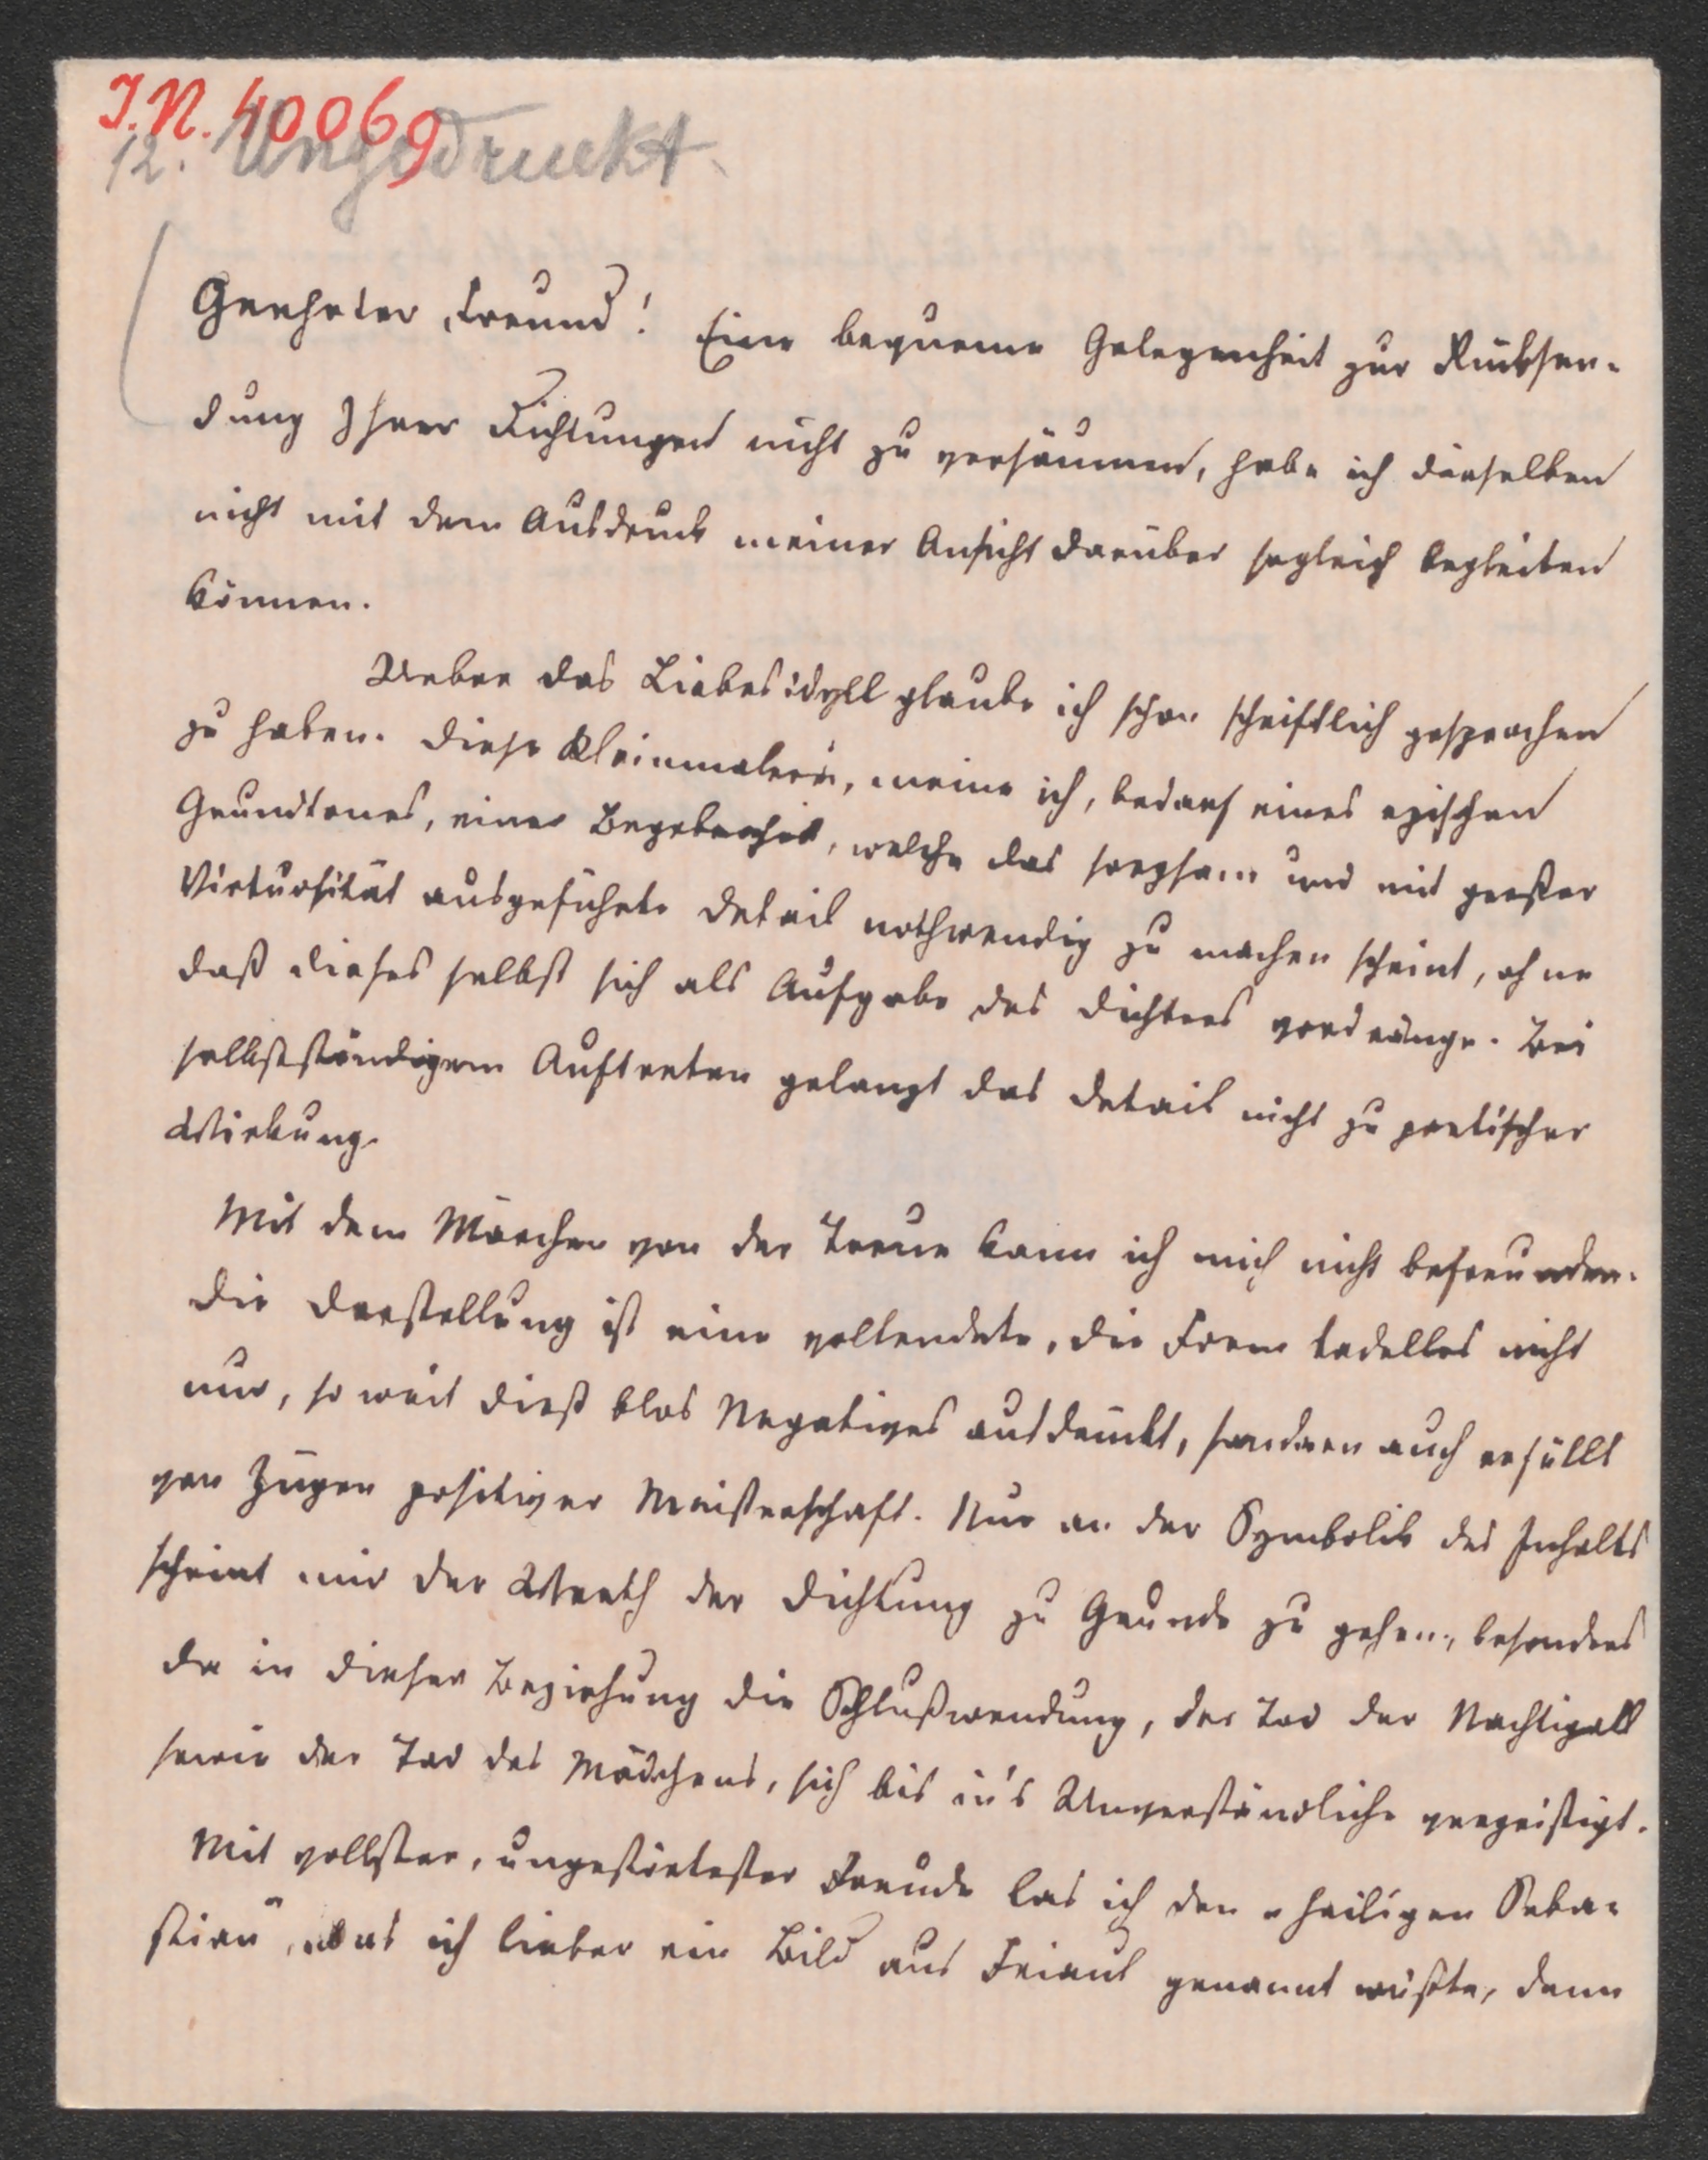 I.N. 40069
12. Ungedruckt.
Geehrter Freund! Eine bequeme Gelegenheit zur Rücksen-
dung Ihrer Dichtungen nicht zu versäumen, habe ich dieselben
nicht mit dem Ausdruck meiner Ansicht darüber sogleich begleiten
können.
Ueber das Liebesidyll glaube ich schon schriftlich gesprochen
zu haben. Diese Kleinmalerei, meine ich, bedarf eines epischen
Grundtones, einer Begebenheit, welche das sorgsam und mit großer
Virtuosität ausgeführte Detail nothwendig zu machen scheint, ohne
daß dieses selbst sich als Aufgabe des Dichters vordränge. Bei
selbstständigem Auftreten gelangt das Detail nicht zu poetischer
Wirkung.
Mit dem Märchen von der Treue kann ich mich nicht befreunden.
Die Darstellung ist eine vollendete, die Form tadellos nicht
nur, so weit dieß blos Negatives ausdrückt, sondern auch erfüllt
von Zügen positiver Meisterschaft. Nur an der Symbolik des Inhalts
scheint mir der Werth der Dichtung zu Grunde zu gehen, besonders
da in dieser Beziehung die Schlußwendung, der Tod der Nachtigall
sowie der Tod des Mädchens, sich bis in's Unverständliche vergeistigt.
Mit vollster, ungestörtester Freude las ich den „heiligen Seba-
stian", das ich lieber ein Bild aus Friaul genannt wüßte, denn